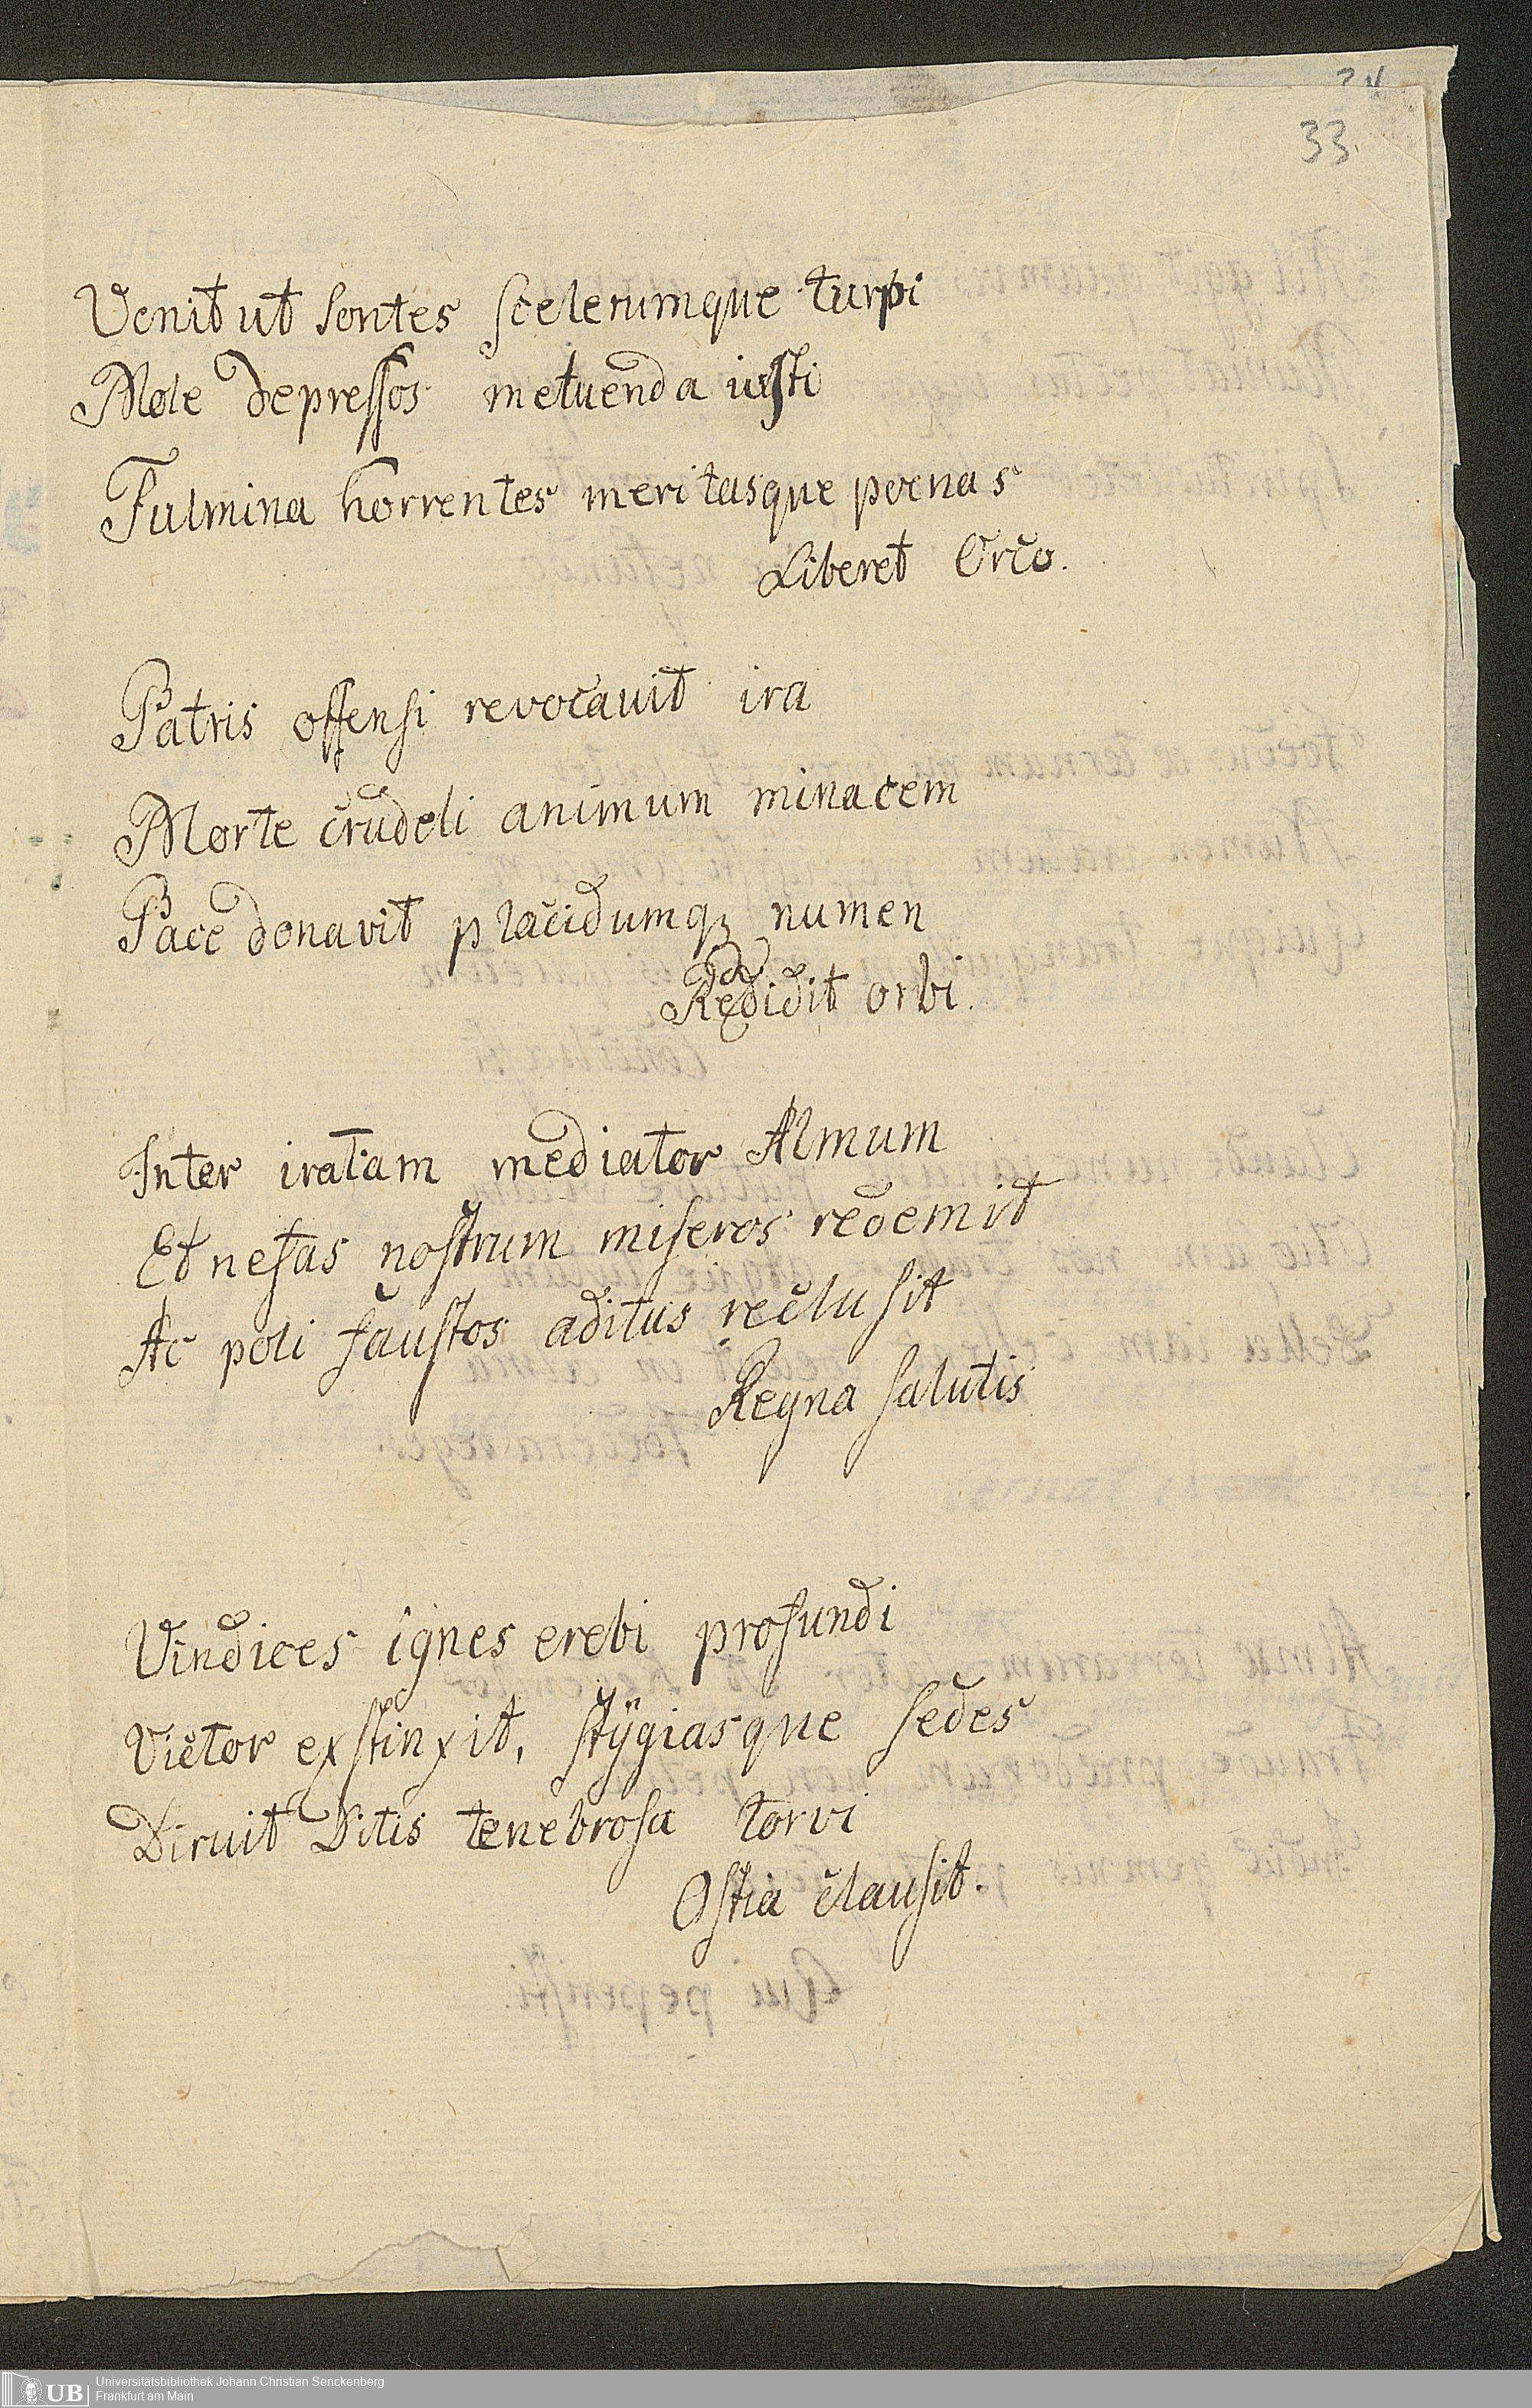 24
33
Venit ut sontes scelerumque turpi
Mole depressos metuenda iusti
Fulmina horrentes meritasque poenas
Liberet Orco.
Patris offensi revocavit ira
Morte crudeli animum minacem
Pace donavit placidumqꝫ numen
Reddidit orbi.
Inter iratam mediator Almum
Et nefas nostrum miseros redemit
Ac poli faustos aditus reclusit
Regna salutis
Vindices ignes erebi profundi
Victor exstinxit, stÿgiasque sedes
Diruit Ditis tenebrosa torvi
Ostia clausit.
Qui peperisti.
UB
Universitätsbibliothek Johann Christian Senckenberg
Frankfurt am Main